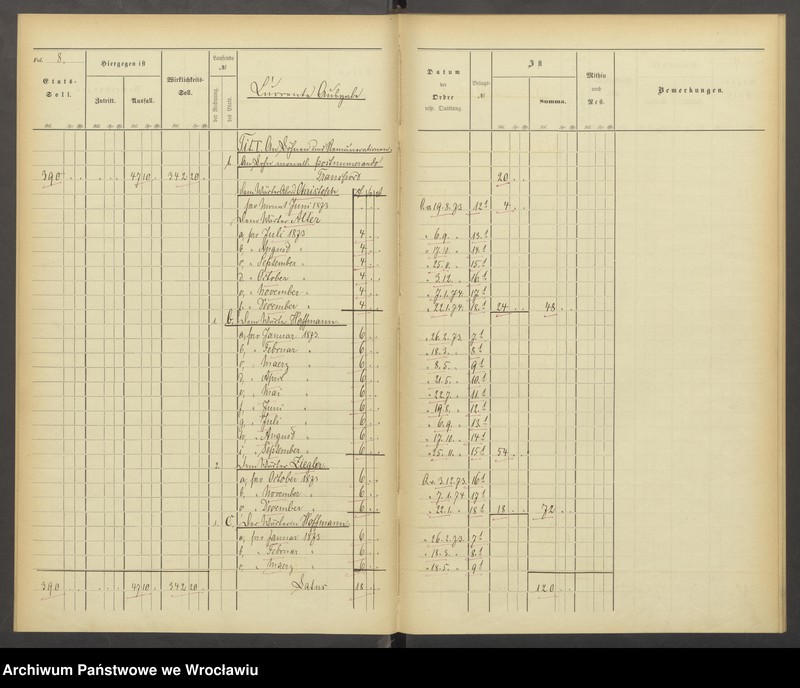 Fol. 8.
Etats-Soll.
Hiergegen ist
Zutritt.
Ausfall.
Wirklichkeits-Soll.
Laufende №
der Ordnung.
des Etats.
Currente Ausgabe
Datum der Ordre resp. Quittung.
Belags-№
Ist
Summa.
Mithin noch Rest.
Bemerkungen.
Tit. I. An Löhnen und Remunerationen
An Lohn monatl. postnumerando
390 4710 342 20 Transport 20
Dem Wärter Christoph
pro Monat Juni 1873 19.8.73 12 4
Dem Wärter Alter
a, pro Juli 1873 4 6.9. 13
b, " August " 4 17.11. 14
c, " September " 4 25.11. 15
d, " October " 4 3.12. 16
e, " November " 4 7.1.74. 17
f, " December " 4 22.1.74. 18 24 48
1. b. Dem Wärter Hoffmann
a, pro Januar 1873 6 26.2.73 7
b, " Februar " 6 18.3. 8
c, " Maerz " 6 8.5. 9
d, " April " 6 21.5. 10
e, " Mai " 6 22.7. 11
f, " Juni " 6 19.8. 12
g, " Juli " 6 6.9. 13
h, " August " 6 17.11. 14
i, " September " 6 25.11. 15 54
2. Dem Wärter Ziegler
a, pro October 1873 6 3.12.73 16
b, " November " 6 7.1.74 17
c, " December " 6 22.1. 18 18 72
1. C. Der Wärterin Hoffmann
a, pro Januar 1873 6 26.2.73 7
b, " Februar " 6 18.3. 8
c, " Maerz " 6 18.5. 9
390 4710 342 20 Latus 18 120
Archiwum Państwowe we Wrocławiu